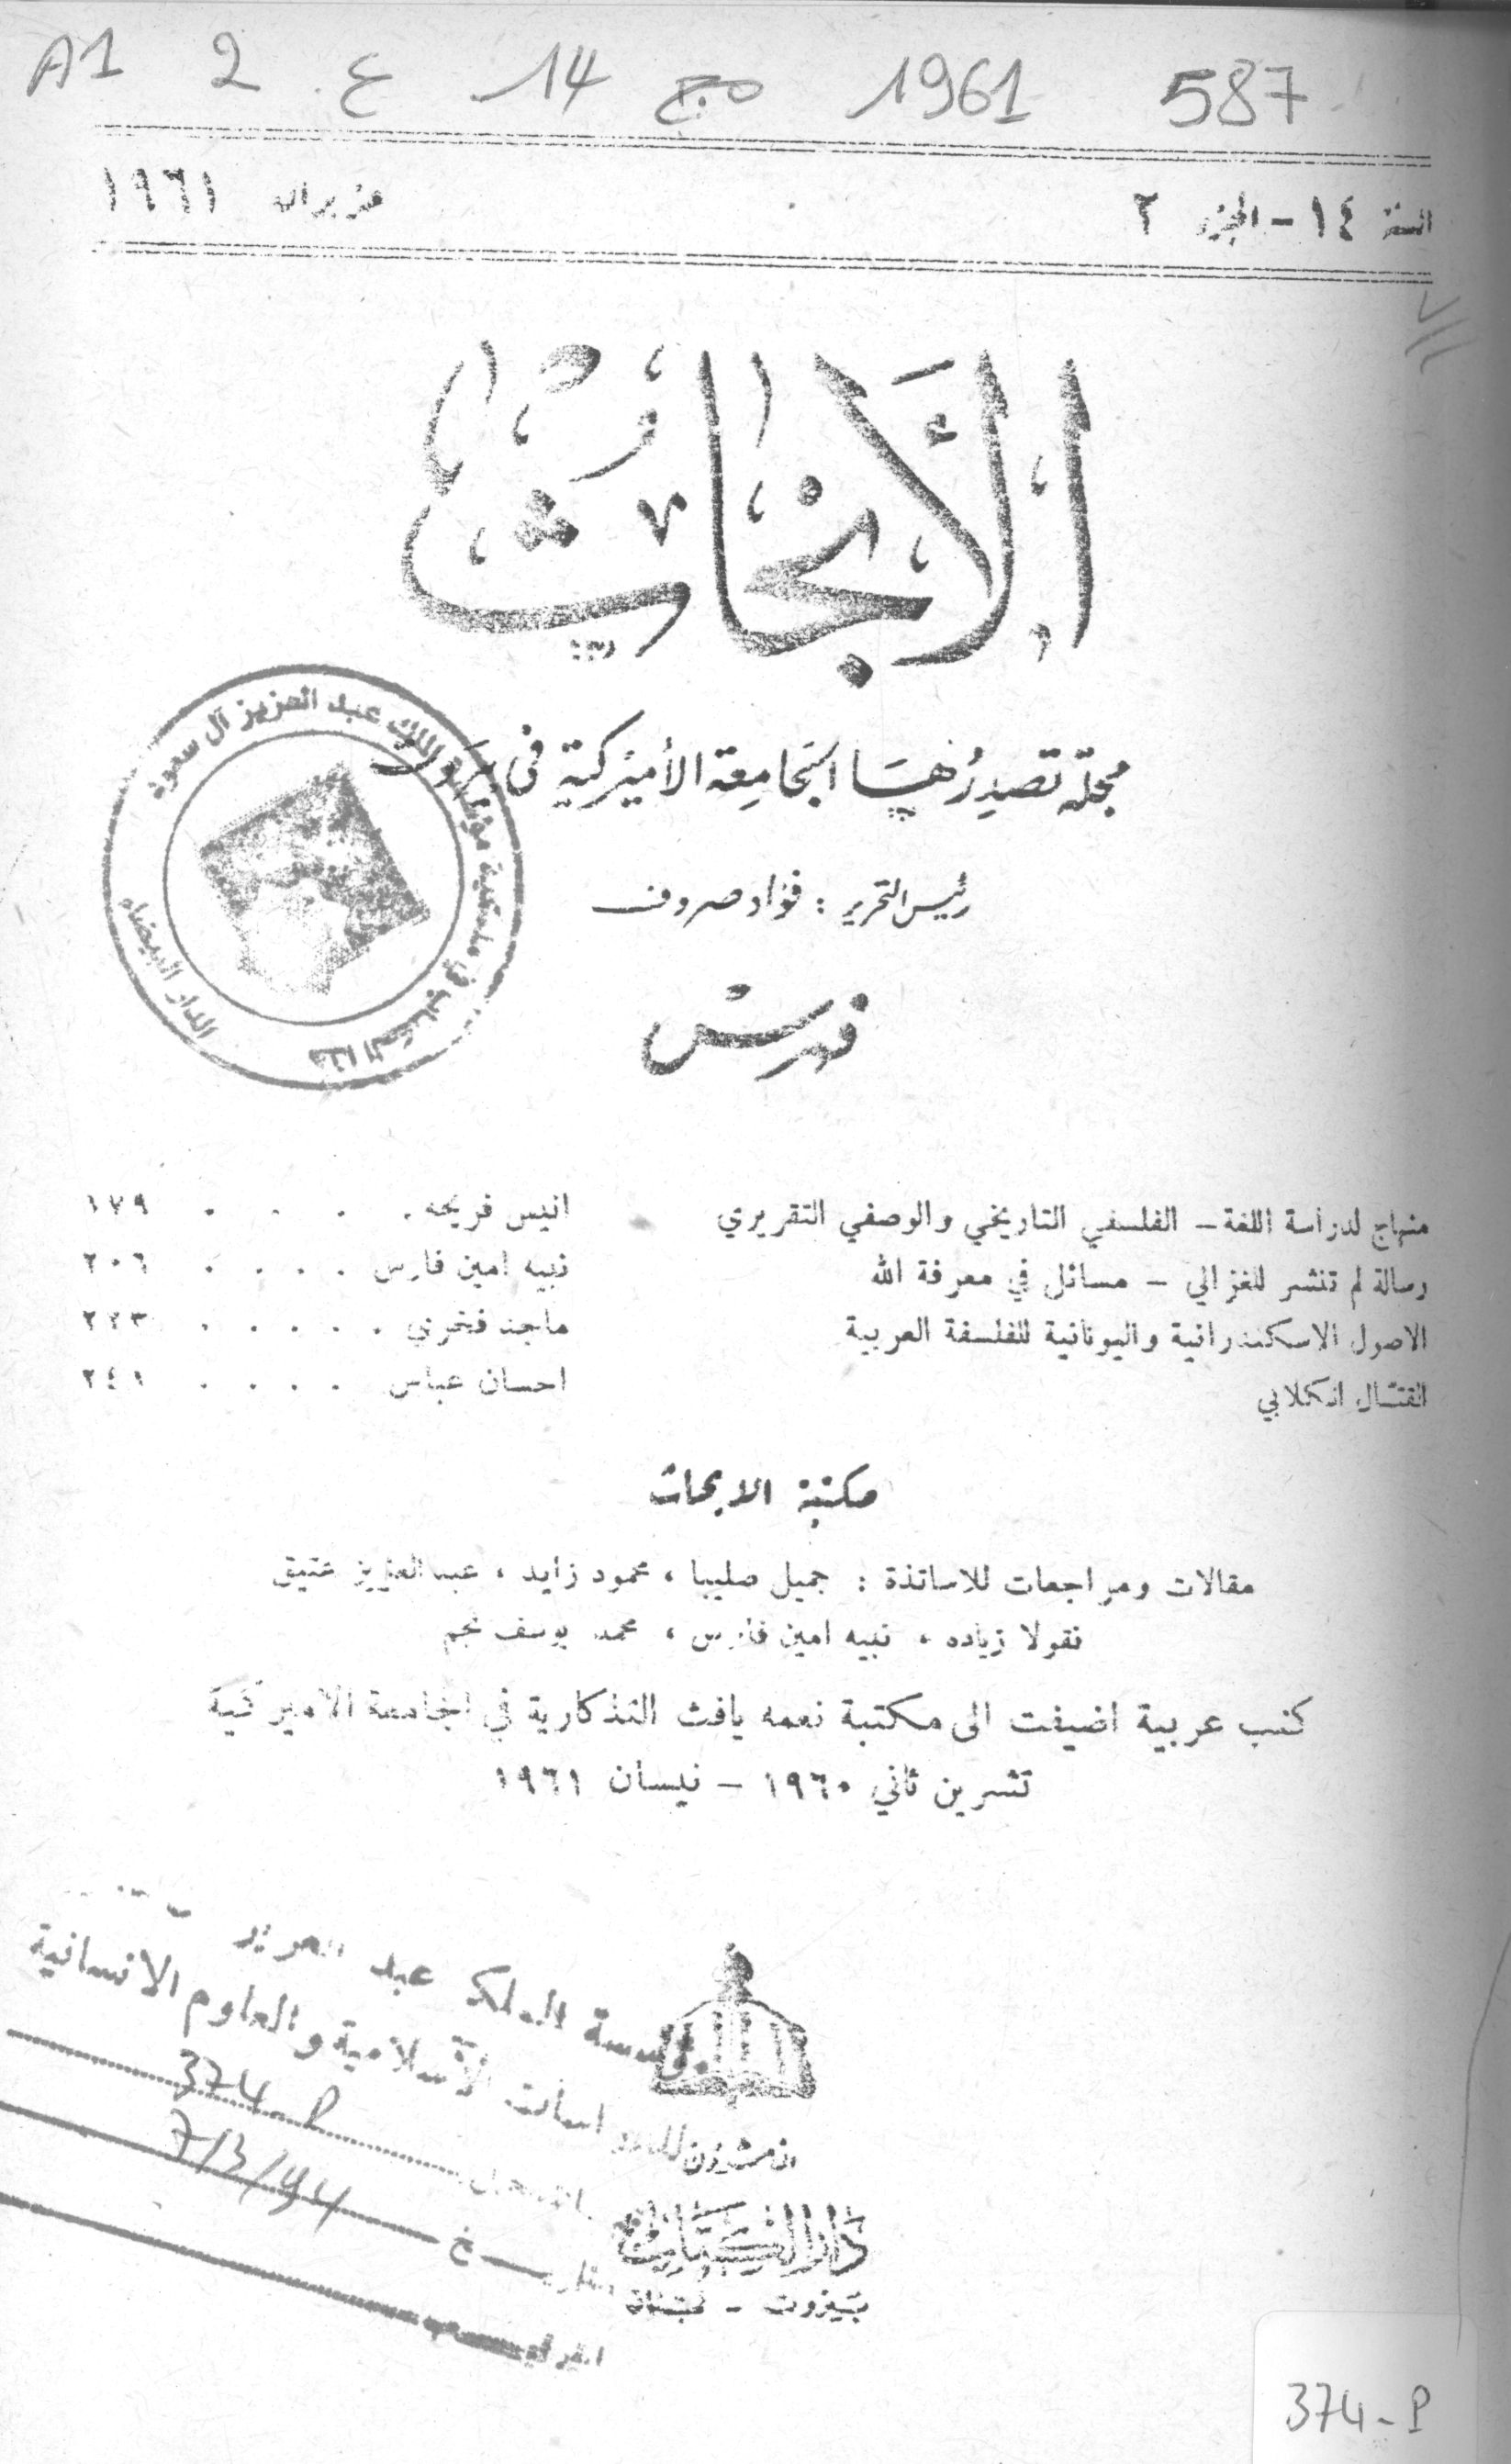 587 1961 مج 14 ع 2 A1
السنة ١٤ - الجزء ٢ حزيران ١٩٦١
الأبحاث
مجلة تصدرها الجامعة الأميركية في بيروت
رئيس التحرير : فؤاد صروف
فهرس
منهاج لدراسة اللغة – الفلسفي التاريخي والوصفي التقريري انيس فريحه . . . . ١٧٩
رسالة لم تنشر للغزالي – مسائل في معرفة الله نبيه امين فارس . . . . ٢٠٦
الاصول الاسكندرانية واليونانية للفلسفة العربية ماجد فخري . . . . . ٢٢٣
القتّال الكلابي احسان عباس . . . . ٢٤١
مكتبة الابحاث
مقالات ومراجعات للاساتذة : جميل صليبا ، محمود زايد ، عبد العزيز عتيق
نقولا زياده ، نبيه امين فارس ، محمد يوسف نجم
كتب عربية اضيفت الى مكتبة نعمه يافث التذكارية في الجامعة الاميركية
تشرين ثاني ١٩٦٠ – نيسان ١٩٦١
هذا الكتاب في ملكية مؤسسة الملك عبد العزيز آل سعود
الدار البيضاء
مؤسسة الملك عبد العزيز
للدراسات الاسلامية والعلوم الانسانية
374-P
خ 7/3/94
الناشرون
دار الكتاب
بيروت - لبنان
374-P